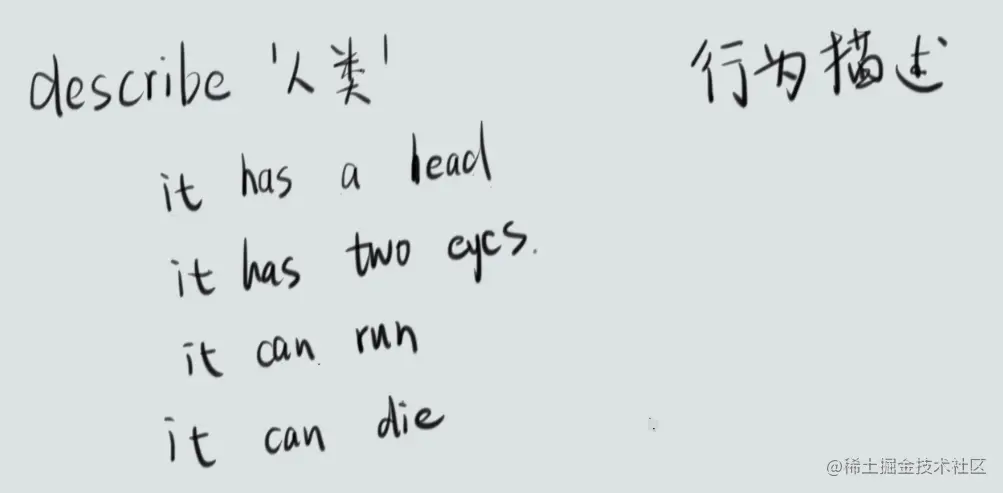 describe '人类'
行为描述
it has a head
it has two eyes.
it can run
it can die
@稀土掘金技术社区